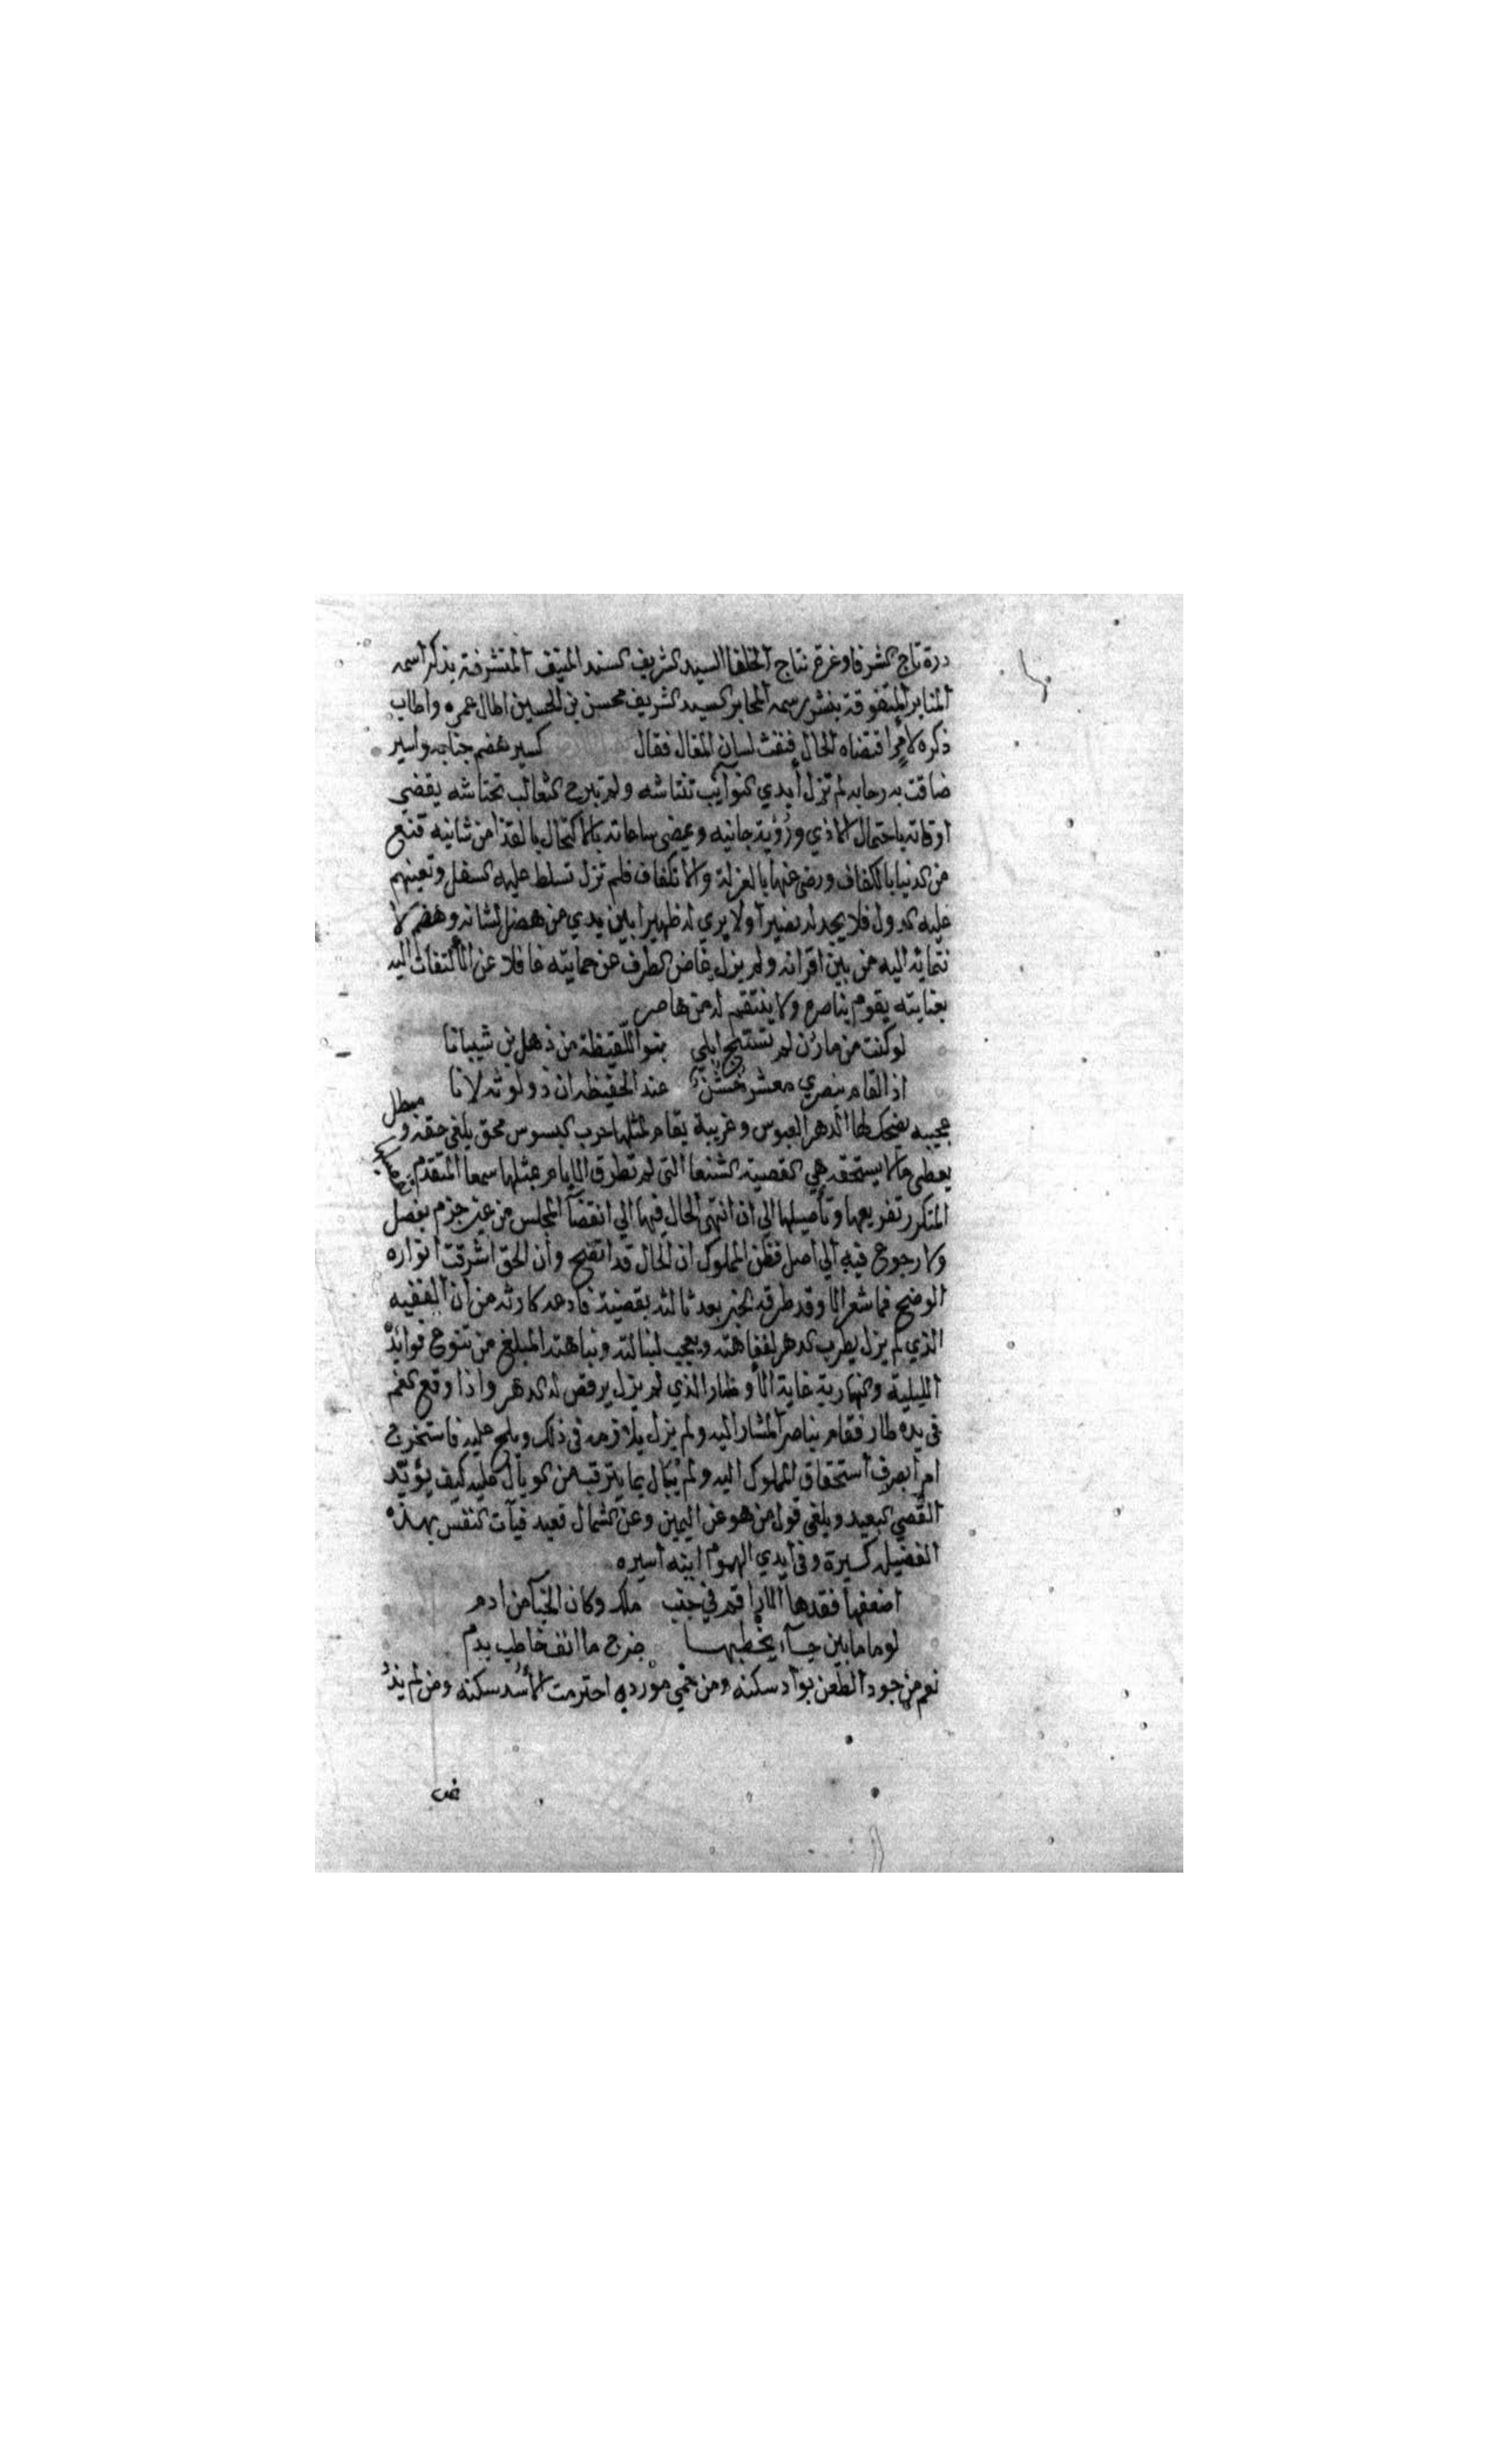 درة تاج الشرفا وغرة نتاج الخلفا السيد الشريف السند المنيف المتشرفة بذكر اسمه
المنابر المتفوقة بنشر رسمه المحابر السيد الشريف محسن بن الحسين اطال عمره واطاب
ذكره لأمرٍ اقتضاه الحال فنفث لسان المقال فقال كسير هضم جنابه واسير
ضاقت به رحابه لم تزل أيدي النوآئب تنتاشه ولم تبرح الثعالب تحتاشه يقضي
اوقاته باحتمال الاذي ورؤية جانيه ويمضي ساعاته بالاكتحال بالقذا من شانيه قنع
من الدنيا بالكفاف ورضي عنها بالعزلة والانكفاف فلم تزل تسلط عليه السفل وتعينهم
عليه الدول فلا يجد له نصيرا ولا يري له ظهيرا بين يدي من هضل لشانه وهضم لا
نتمائه اليه من بين اقرانه ولم يزل غاض الطرف عن حمايته غافلا عن الألتفات اليه
بعنايته يقوم بناصره ولا ينتقم له من هاصر
لو كنت من مازن لم تستبح إبلي بنو اللقيطة من ذهل بن شيبانا
اذ القام بنصري معشر خشن عند الحفيظه ان ذو لوثه لانا
عجيبه يضحك لها الدهر العبوس وغريبة يقام لمثلها حرب البسوس محق يلغي حقه و مبطل
يعطي مالا يستحقه هي القصية الشنعا التي لم تطرق الايام بمثلها سمعا المتقدم تفصيلها
المتكرر تفريعها وتأصيلها الي ان انتهي الحال فيها الي انقضآ المجلس من غير جزم بفصل
ولا رجوع فيه الي اصل فظن المملوك ان الحال قد اتضح وأن الحق اشرقت انواره
الوضح فما شعر الا وقد طرقه الخبر بعد ثالثه بقضية فادعه كارثه من أن الفقيه
الذي لم يزل يطرب الدهر لفقاهته ويعجب لنبالته ونباهته المبلغ من تنوع فوائده
الليلية والنهارية غاية الأوطار الذي لم يزل يرقص له الدهر واذا وقع الغنم
في يده طار فقام بناصر المشار اليه ولم يزل يلازمه في ذلك ويلح عليه فاستخرج
امرا بصرف أستحقاق المملوك اليه ولم يُبال بما يترتب من الوبال عليه كيف يؤيّد
القصي البعيد ويلغي قول من هو عن اليمين وعن الشمال قعيد فيآت النفس بهذه
الفضيله كسيرة وفي أيدي الهموم ابنه أسيره
اضعفها فقدها الاراقم في جنب ملك وكان الخبآ من ادم
لوماما بين جآء يخطبها ضرج ما انف خاطب بدم
نعم من جود الطعن بوأد سكنه ومن حمي مورده احترمت الأسد سكنه ومن لم يذد
عن